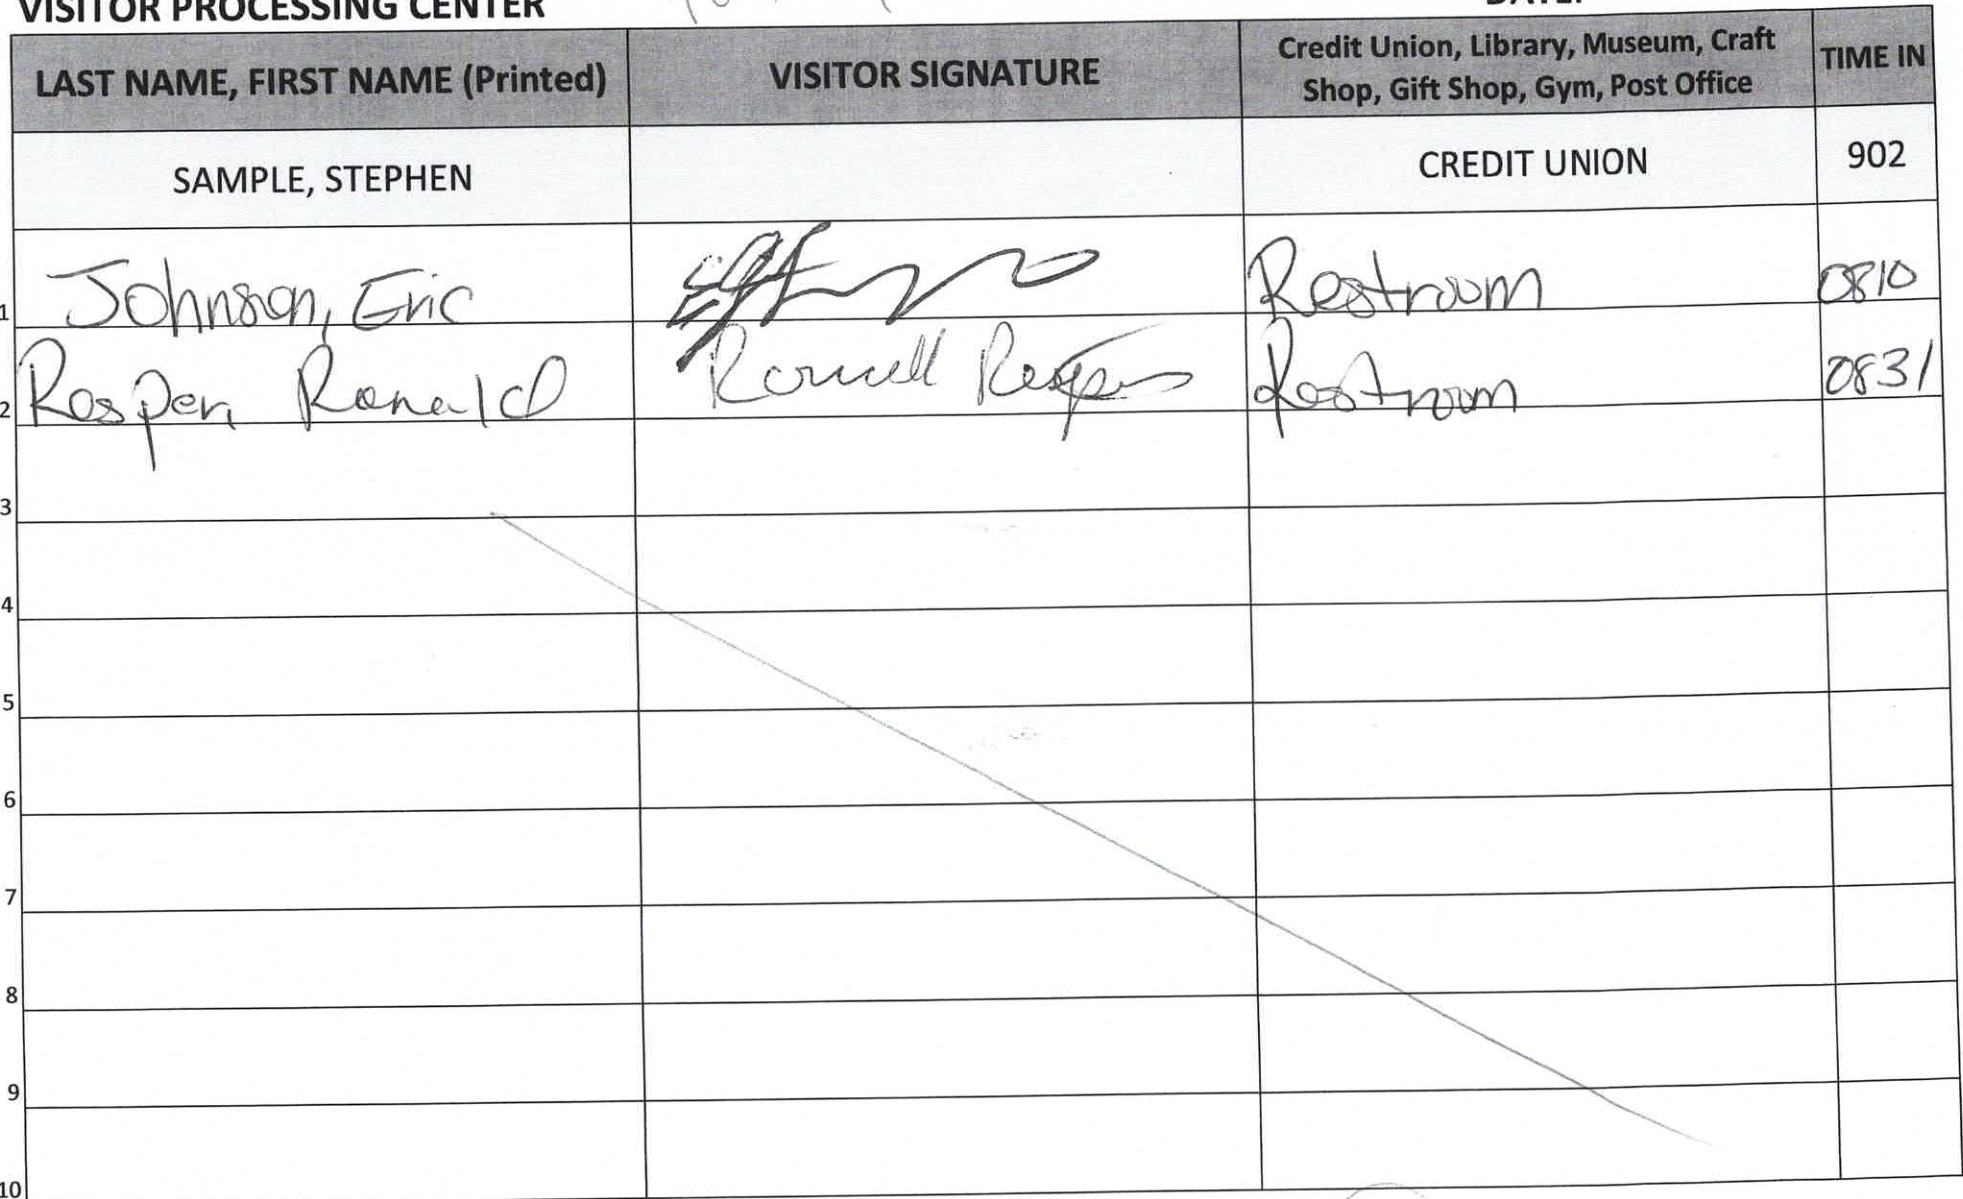 VISITOR PROCESSING CENTER
LAST NAME, FIRST NAME (Printed) VISITOR SIGNATURE Credit Union, Library, Museum, Craft Shop, Gift Shop, Gym, Post Office TIME IN
SAMPLE, STEPHEN CREDIT UNION 902
1 Johnson, Eric Restroom 0810
2 Rosper Ronald Restroom 0831
3
4
5
6
7
8
9
10